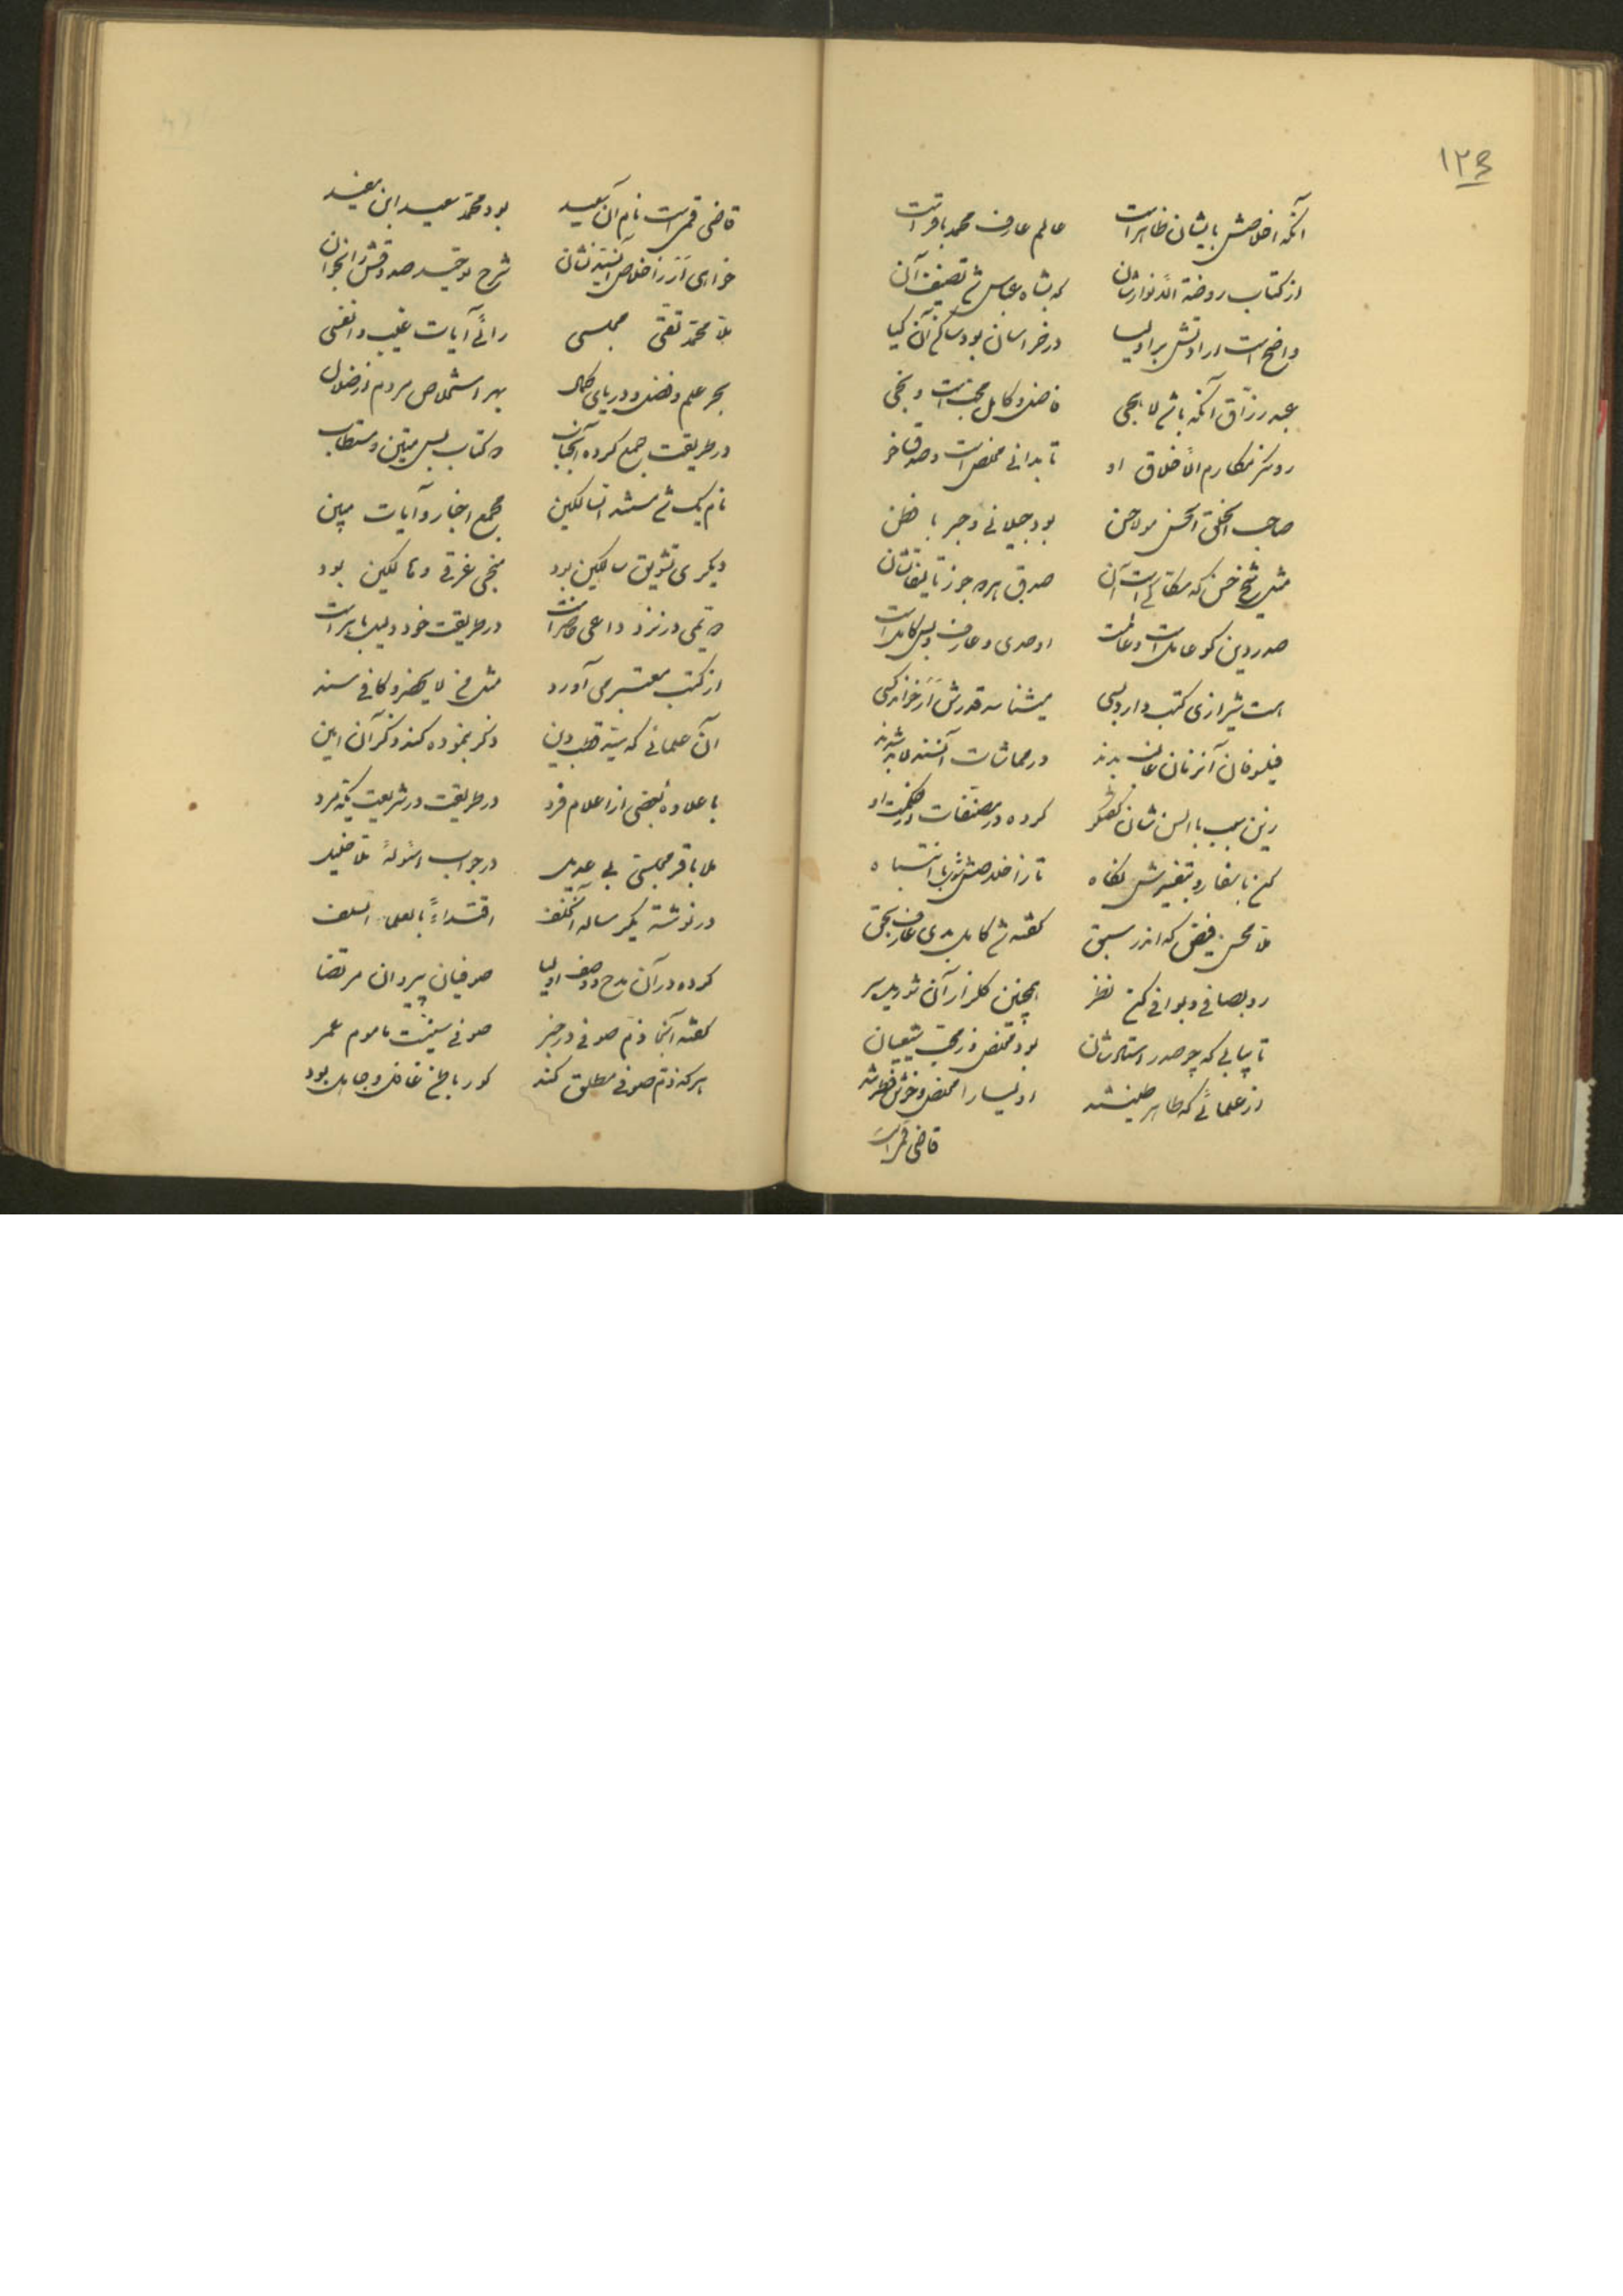 ۱۲۴
آنکه اخلاصش بایشان ظاهر است عالم عارف محمد باقر است
از کتاب روضة الانوارشان که بشاه عباس شد تصنیف آن
واضح است ارادتش بر اولیا در خراسان بود ساکن آن کیا
عبد رزاق آنکه باشد لاهجی فاضل و کامل محب است و نجی
رو نکر مکارم الأخلاق او تا بدانی مخلص است و صدق خو
صاحب الخلق الحسن مولا حسن بود جیلانی و حبر با فطن
مثل شیخ حسن که مکاکی است آن صدق بهره جو ز تألیفاتشان
صدر دین کو عامل است و عالمست اوحدی و عارف و بس کامل است
هست شیرازی کتب دارد بسی میشناسد قدرش ار خواند کسی
فیلسوفان آنزمان غالب بدند در مماشات آنسند لابد شدند
زین سبب با السن شان گفتگو کرده در مصنفات حکمیت او
کن باسفار و بتفسیرش نگاه تا ز اخلاصش شوی با انتباه
ملا محسن فیض که اندر سبق گفته شد کامل بدی عارف بحق
رو بصافی و بوافی کن نظر همچنین کلزار آن شو دیده‌ور
تا بیابی که چو صدر استادشان بود مخلص در محب شیعیان
از علمائی که طاهر طینتند اولیا را مخلص و خوش فطرتند
قاضی قمی است
قاضی قمی است نام آن سعید بود محمد سعید ابن مفید
خواهی ار ز اخلاص آنسید نشان شرح توحید صدوقش را بخوان
ملا محمد تقی مجلسی رائی آیات غیب و انفسی
بحر علم و فضل و دریای کمال بهر استخلاص مردم از ضلال
در طریقت جمع کرده آنجناب دو کتاب بس متین و مستطاب
نام یک شد مستند السالکین مجمع اخبار و آیات مبین
دیکری تشویق سالکین بود منجی غرقی و هالکین بود
دویمی در نزد داعی حاضر است در طریقت خود دلیل باهر است
از کتب معتبر می آورد مثل من لا یحضر و کافی سند
آن علمائی که سید قطب دین ذکر بنموده کند ذکر آن امین
با علاوه بعضی از اعلام فرد در طریقت در شریعت یکه مرد
ملا باقر مجلسی بی عدیل در جواب اسئوله ملا خلیل
در نوشته یک رساله آنخلف اقتداءً بالعلماء السلف
کرده در آن مدح و وصف اولیا صوفیان پیروان مرتضا
گفته آنجا ذم صوفی در خبر صوفی سنیست ماموم عمر
هر که ذم صوفی مطلق کند کور باطن غافل و جاهل بود